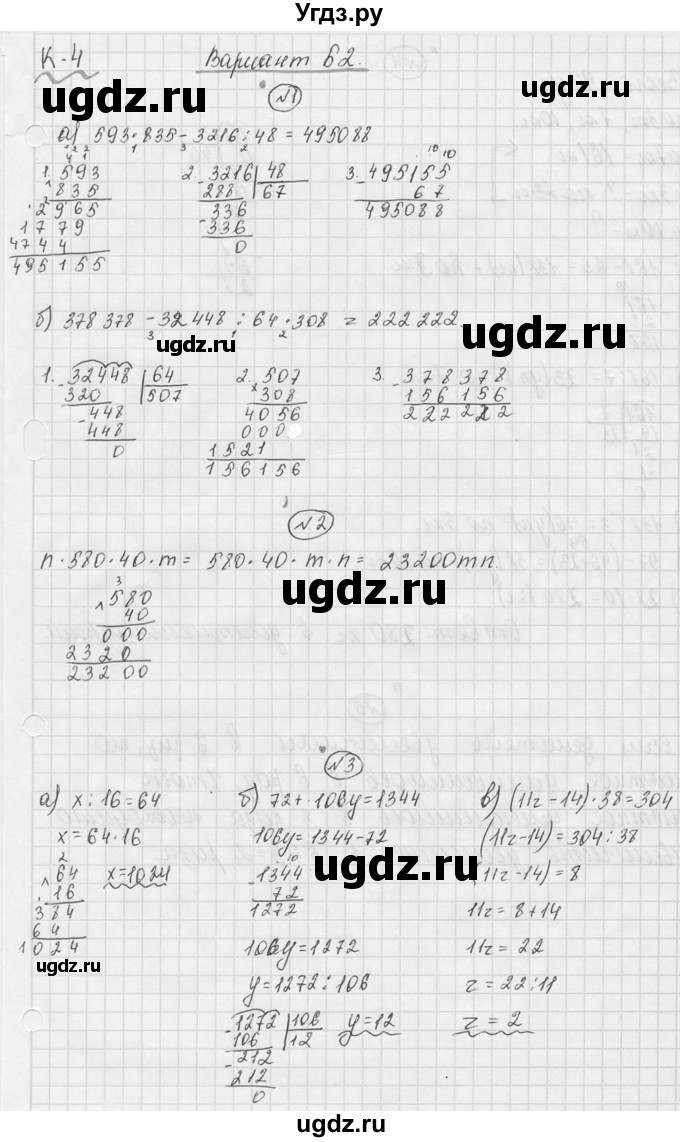 Угдз.ру
К-4 Вариант 62.
№1
а) 593·835-3216:48=495088
1. 593
835
2965
1779
4744
495155
2. 3216 48
288 67
336
336
0
3. 495155
67
495088
б) 378378-32448:64·308=222222.
1. 32448 64
320 507
448
448
0
2. 507
× 308
4056
000
1521
156156
3. 378378
156156
222222
№2
n·580·40·m= 580·40·m·n= 23200mn.
580
40
000
2320
23200
№3
а) x:16=64
x=64·16
64
16
384
64
1024
x=1024
б) 72+106y=1344
106y=1344-72
1344
72
1272
106y=1272
y=1272:106
1272 106
106 12
212
212
0
y=12
в) (11z-14)·38=304
(11z-14)=304:38
(11z-14)=8
11z=8+14
11z=22
z=22:11
z=2
ugdz.ru
ugdz.ru
ugdz.ru
ugdz.ru
ugdz.ru
ugdz.ru
ugdz.ru
ugdz.ru
ugdz.ru
ugdz.ru